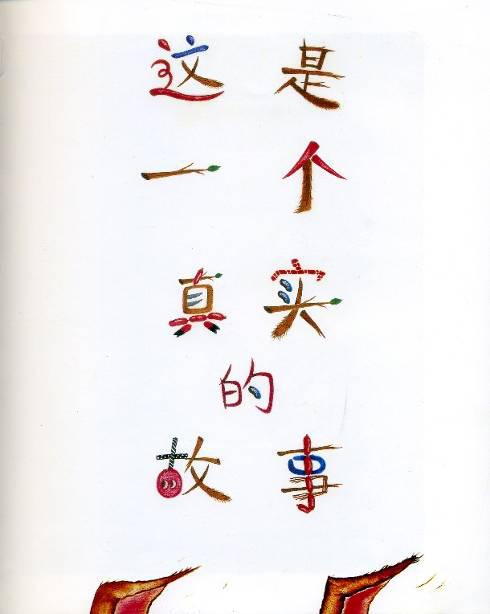 这是
一个
真实
的
故事